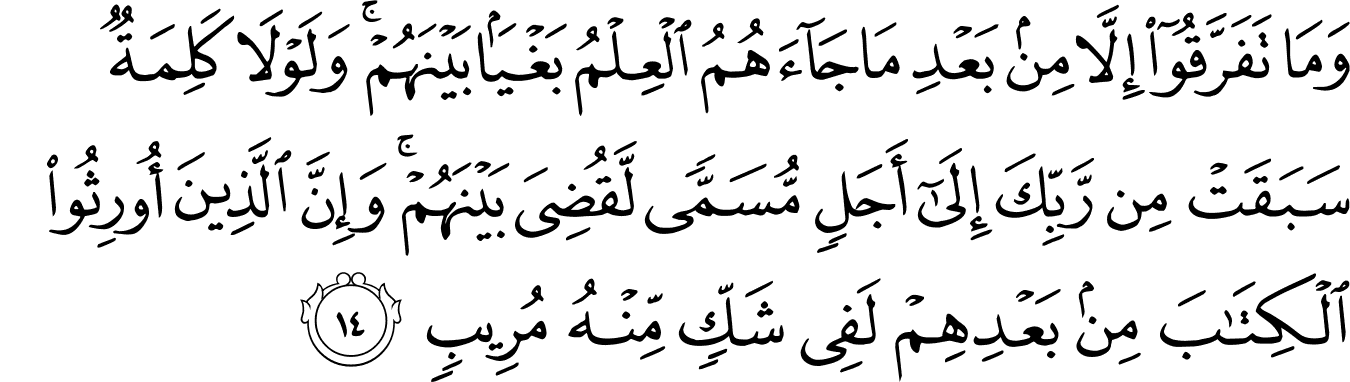 وَمَا تَفَرَّقُوٓا۟ إِلَّا مِنۢ بَعْدِ مَا جَآءَهُمُ ٱلْعِلْمُ بَغْيًۢا بَيْنَهُمْ ۚ وَلَوْلَا كَلِمَةٌ
سَبَقَتْ مِن رَّبِّكَ إِلَىٰٓ أَجَلٍ مُّسَمًّى لَّقُضِىَ بَيْنَهُمْ ۚ وَإِنَّ ٱلَّذِينَ أُورِثُوا۟
ٱلْكِتَٰبَ مِنۢ بَعْدِهِمْ لَفِى شَكٍّ مِّنْهُ مُرِيبٍ ١٤